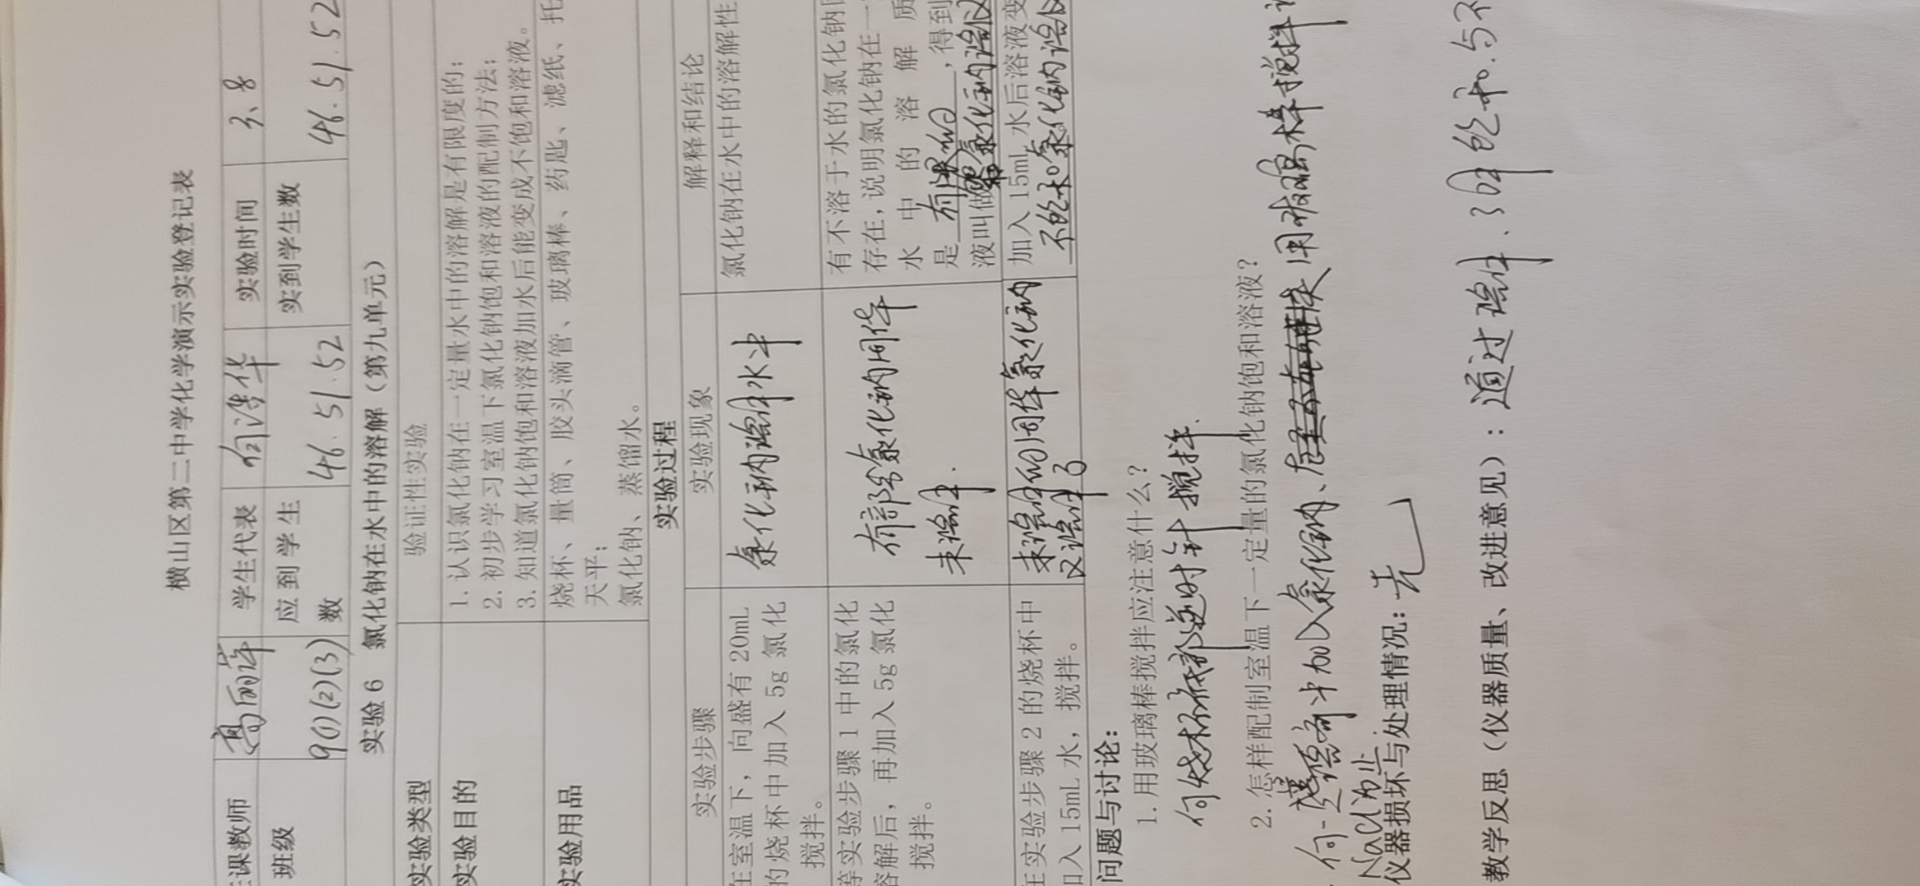 横山区第二中学化学演示实验登记表
课教师 高丽萍 学生代表 实验时间 3、8
班级 901(2)(3) 应到学生数 46.51.52 实到学生数 46.51.52
实验6 氯化钠在水中的溶解（第九单元）
实验类型 验证性实验
实验目的 1. 认识氯化钠在一定量水中的溶解是有限度的；
2. 初步学习室温下氯化钠饱和溶液的配制方法；
3. 知道氯化钠饱和溶液加水后能变成不饱和溶液。
实验用品 烧杯、量筒、胶头滴管、玻璃棒、药匙、滤纸、托
天平；
氯化钠、蒸馏水。
实验过程
实验步骤 实验现象 解释和结论
在室温下，向盛有20mL
的烧杯中加入5g氯化
搅拌。
氯化钠溶解水中
氯化钠在水中的溶解性
等实验步骤1中的氯化
溶解后，再加入5g氯化
搅拌。
有部分氯化钠固体
未溶解.
有不溶于水的氯化钠
存在，说明氯化钠在一
水中的溶解质
是 有限的 ，得到
液叫做 氯化钠溶液
在实验步骤2的烧杯中
加入15mL水，搅拌。
未溶解的固体氯化钠
又溶解了
加入15mL水后溶液变
不饱和氯化钠溶液
问题与讨论：
1. 用玻璃棒搅拌应注意什么？
向烧杯底部逆时针搅拌.
2. 怎样配制室温下一定量的氯化钠饱和溶液？
向一 中加入氯化钠、 用玻璃棒搅拌
NaCl为止.
仪器损坏与处理情况：无
教学反思（仪器质量、改进意见）：通过 溶解、 饱和.与不